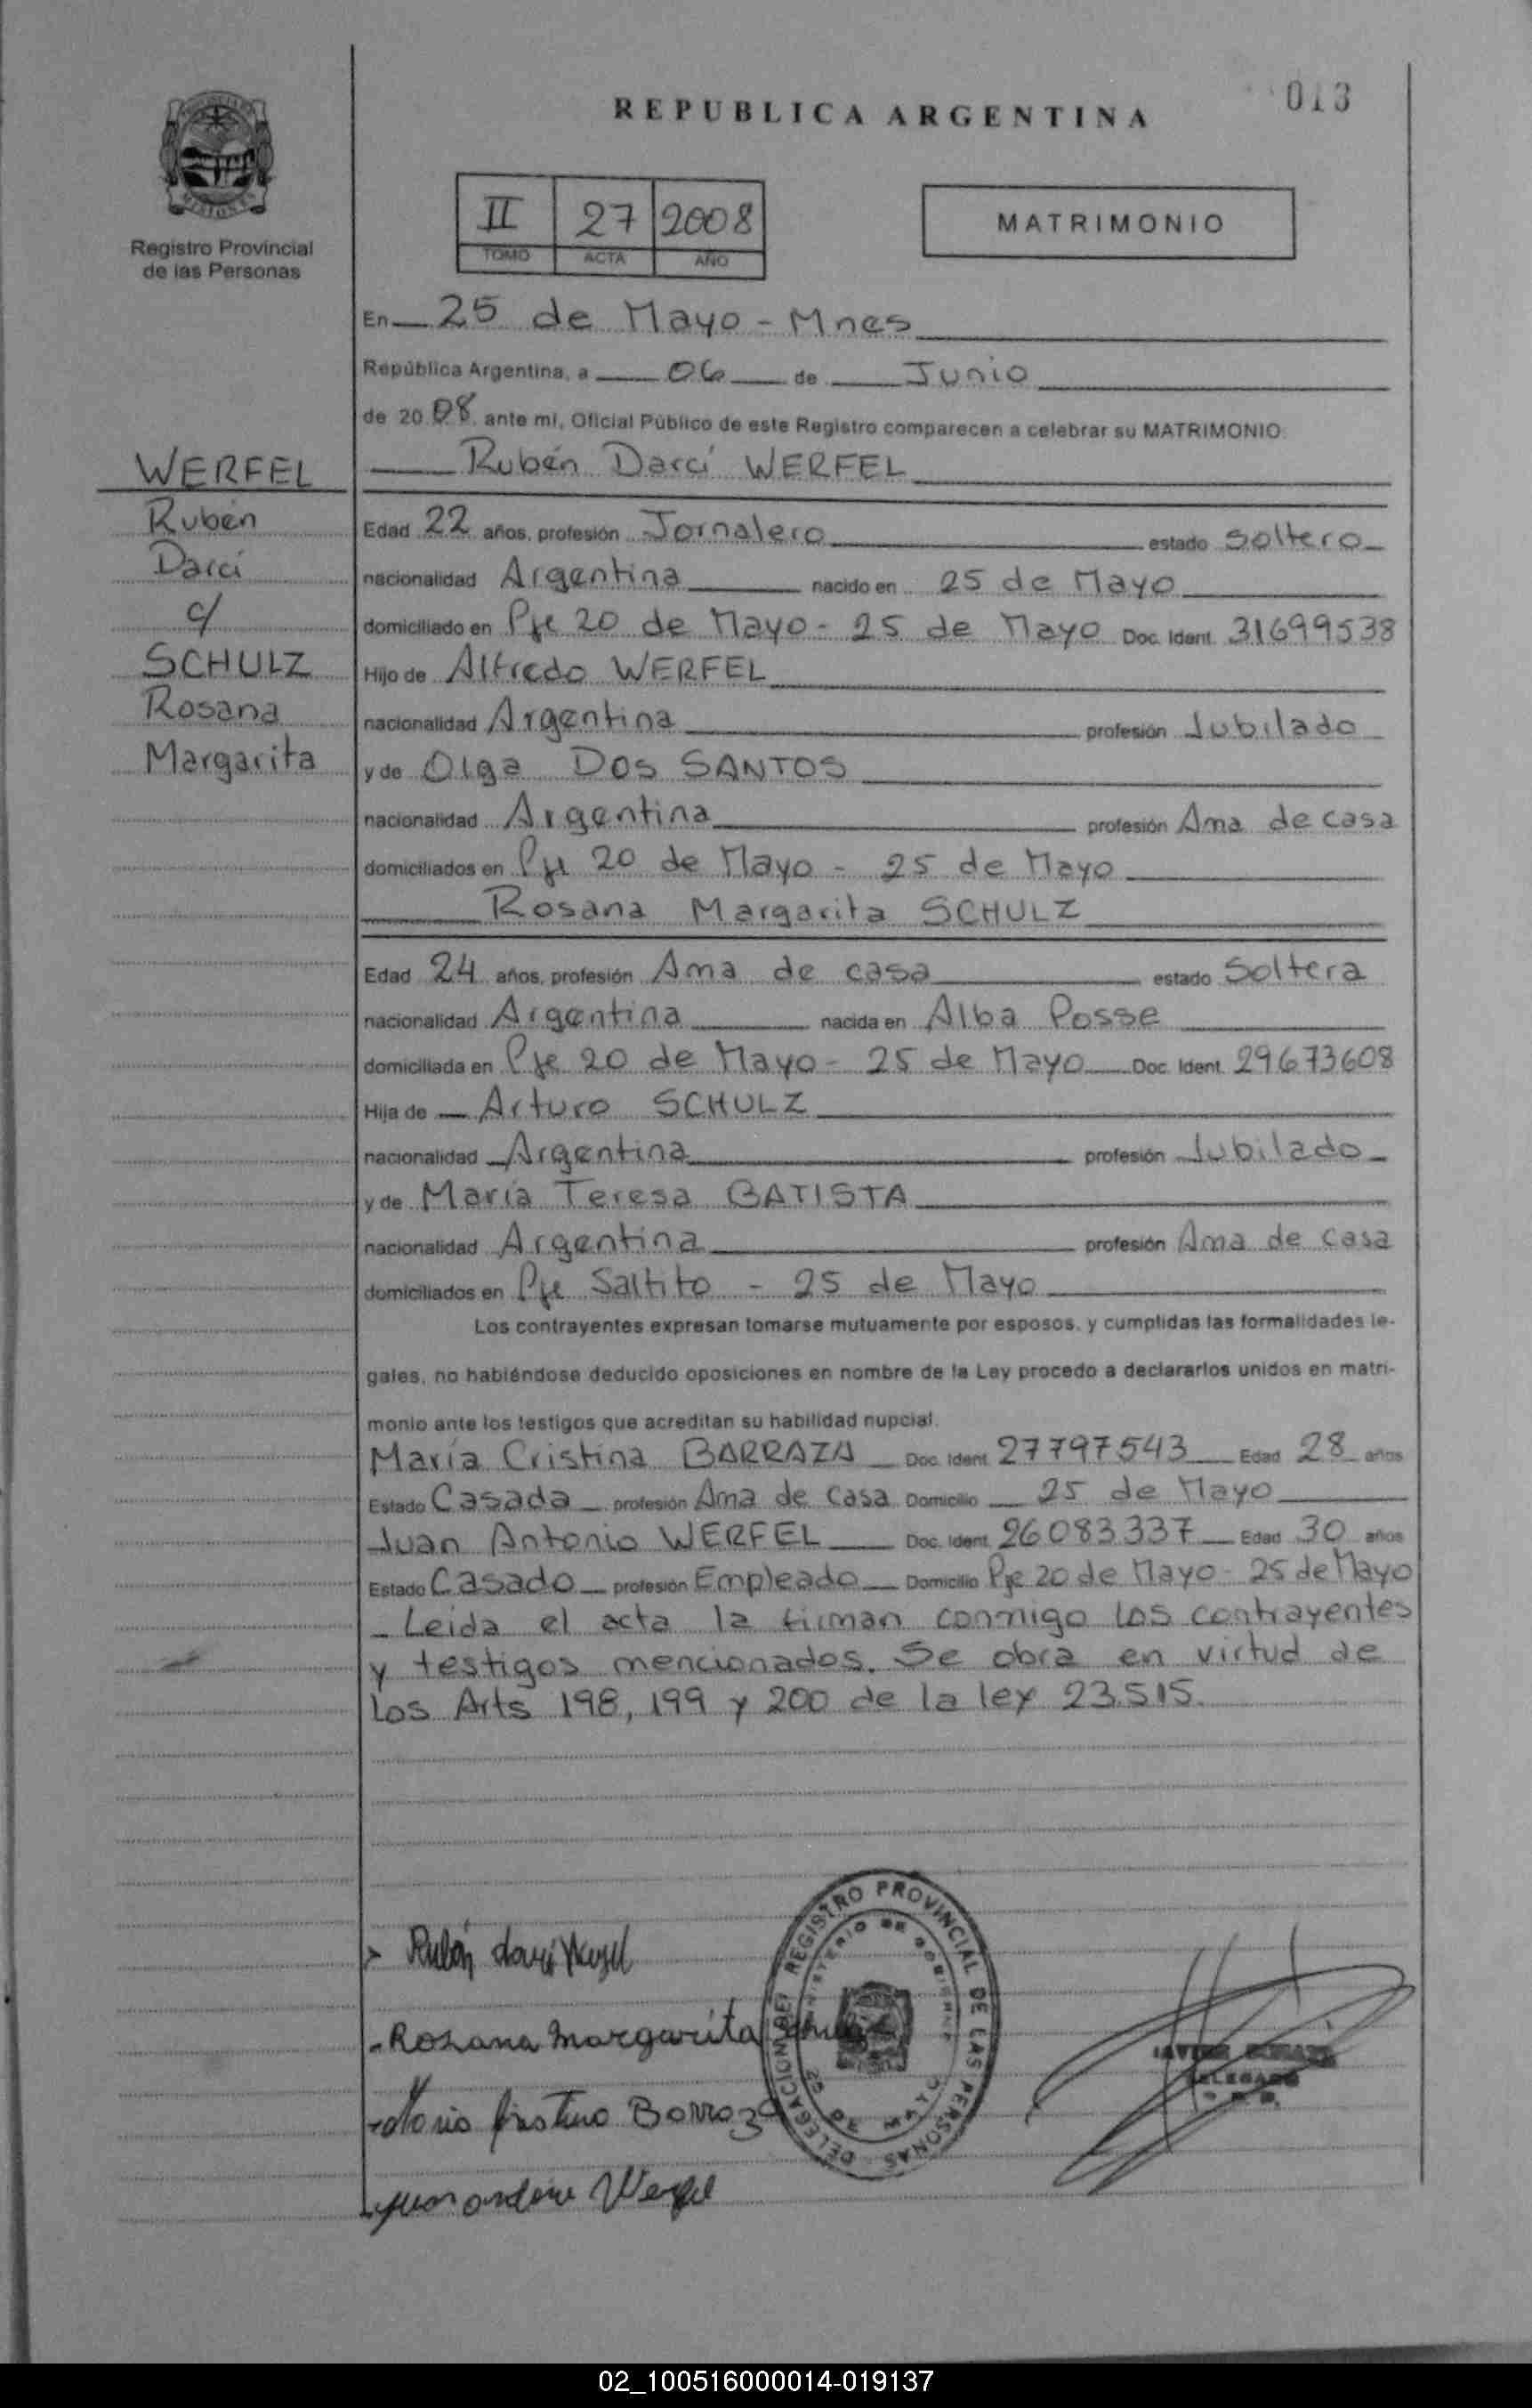 REPUBLICA ARGENTINA
013
MISIONES
Registro Provincial
de las Personas
II 27 2008
TOMO ACTA AÑO
MATRIMONIO
En 25 de Mayo - Mnes
República Argentina, a 06 de Junio
de 2008 ante mi, Oficial Público de este Registro comparecen a celebrar su MATRIMONIO:
Rubén Darcí WERFEL
WERFEL
Rubén
Darcí
c/
SCHULZ
Rosana
Margarita
Edad 22 años, profesión Jornalero estado soltero
nacionalidad Argentina nacido en 25 de Mayo
domiciliado en Pje 20 de Mayo - 25 de Mayo Doc. Ident. 31699538
Hijo de Alfredo WERFEL
nacionalidad Argentina profesión Jubilado
y de Olga DOS SANTOS
nacionalidad Argentina profesión Ama de casa
domiciliados en Pje 20 de Mayo - 25 de Mayo
Rosana Margarita SCHULZ
Edad 24 años, profesión Ama de casa estado Soltera
nacionalidad Argentina nacida en Alba Posse
domiciliada en Pje 20 de Mayo - 25 de Mayo Doc. Ident. 29673608
Hija de Arturo SCHULZ
nacionalidad Argentina profesión Jubilado
y de María Teresa BATISTA
nacionalidad Argentina profesión Ama de casa
domiciliados en Pje Saltito - 25 de Mayo
Los contrayentes expresan tomarse mutuamente por esposos, y cumplidas las formalidades le-
gales, no habiéndose deducido oposiciones en nombre de la Ley procedo a declararlos unidos en matri-
monio ante los testigos que acreditan su habilidad nupcial.
María Cristina BARRAZA Doc. Ident. 27797543 Edad 28 años
Estado Casada profesión Ama de casa Domicilio 25 de Mayo
Juan Antonio WERFEL Doc. Ident. 26083337 Edad 30 años
Estado Casado profesión Empleado Domicilio Pje 20 de Mayo - 25 de Mayo
- Leida el acta la firman conmigo los contrayentes
y testigos mencionados. Se obra en virtud de
los Arts 198, 199 y 200 de la ley 23.515.
Rubén Darcí Werfel
- Rosana Margarita Schulz
- María Cristina Barraza
- Juan Antonio Werfel
DELEGACION DEL REGISTRO PROVINCIAL DE LAS PERSONAS
MINISTERIO DE GOBIERNO
25 DE MAYO
JAVIER
DELEGADO
02_100516000014-019137